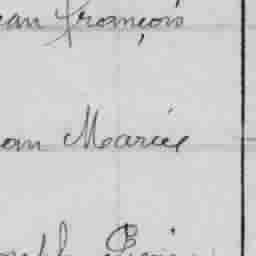 ean François
ean Marie